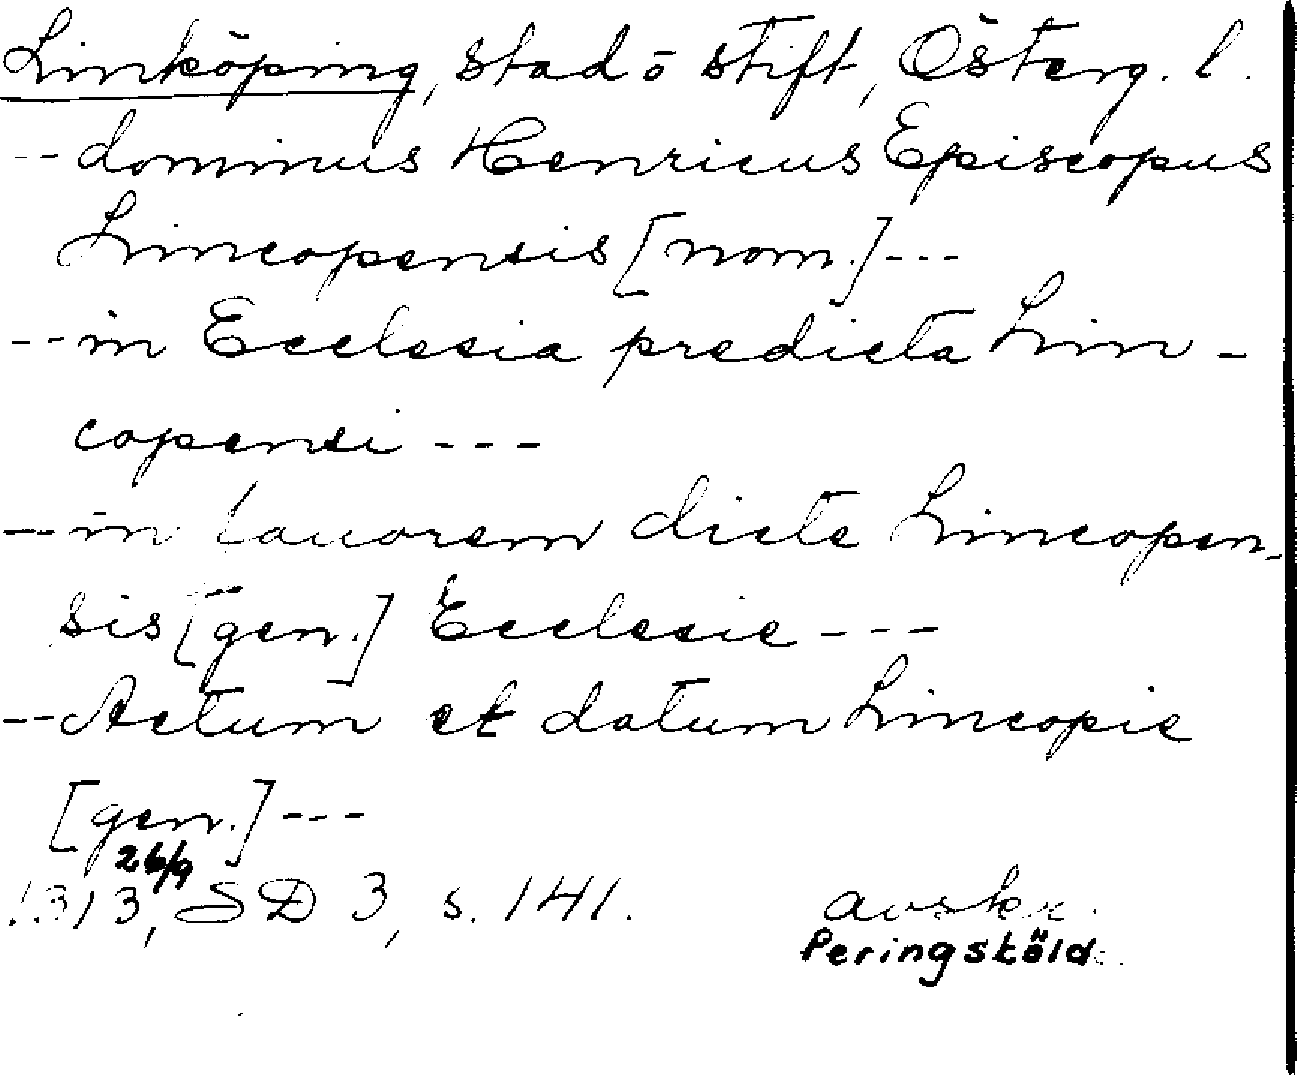 Linköping, stad o stift, Österg. l.
-- dominus Henricus Episcopus
Lincopensis [nom.] ---
-- in Ecclesia predicta Lin-
copensi ---
-- in fauorem dicte Lincopen-
sis [gen.] Ecclesie ---
-- Actum et datum Lincopie
[gen.] ---
26/9
1313, SD 3, s. 141. avskr.
Peringsköld